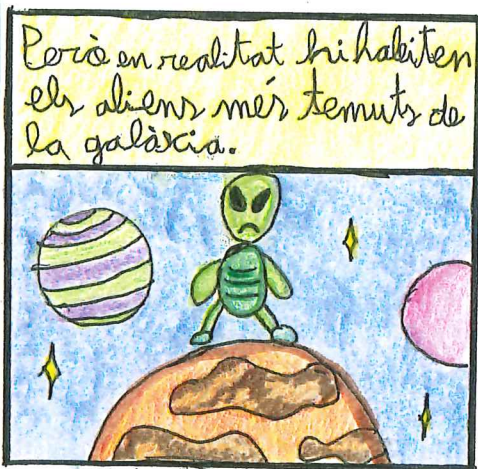 Però en realitat hi habiten
els aliens més temuts de
la galàxia.